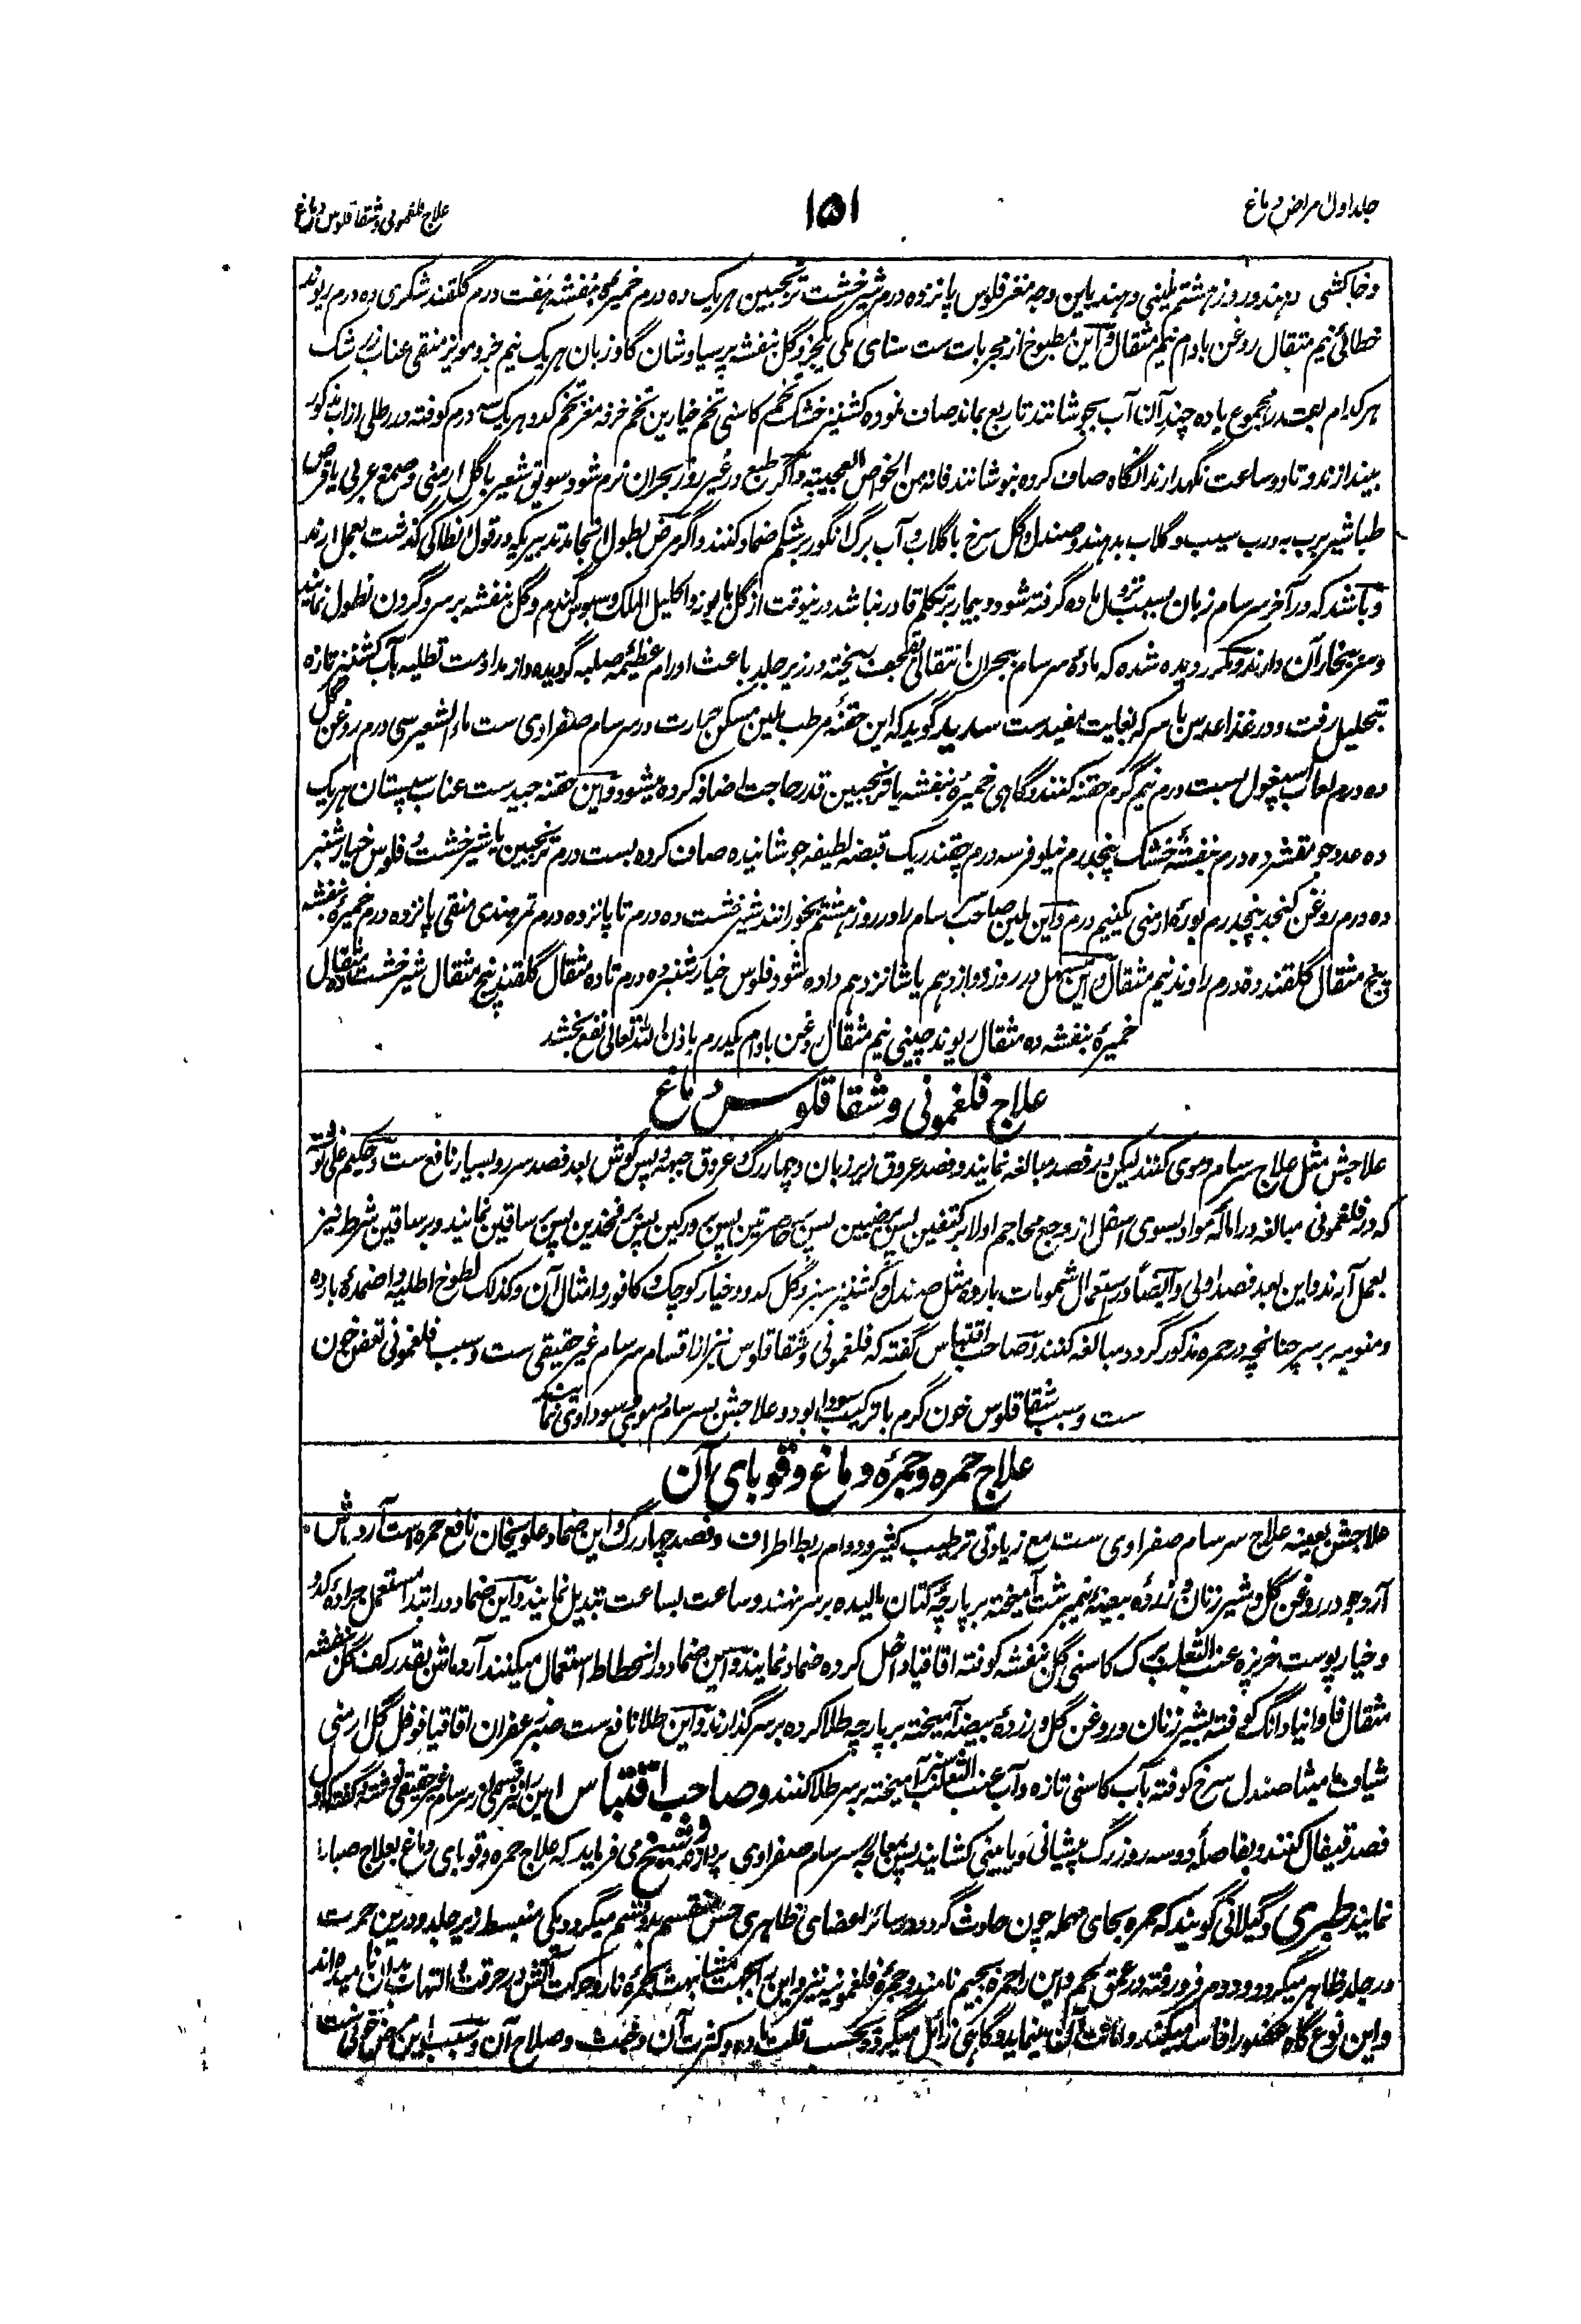 جلد اول امراض دماغ
۱۵۱
علاج فلغمونی و شقاقلوس دماغ
و خاکشی دهند و روز هشتم ملینی دهند باین وجه مغز فلوس پانزده درم شیرخشت ترنجبین هر یک ده درم خمیره بنفشه هفت درم گلقند شکری ده درم ریوند
خطائی نیم مثقال روغن بادام نیم مثقال و این مطبوخ از مجربات ست سنای مکی یکجزو گل بنفشه پرسیاوشان گاوزبان هر یک نیم جزو مویز منقی عناب زرشک
هر کدام مجموع باده چند آن آب بجوشانند تا ربع بماند صاف نموده کشنیز خشک تخم کاسنی تخم خیارین تخم خرفه مغز تخم کدو هر یک سه درم کوفته در رطلی از آب مذکور
بیندازند و تا دو ساعت نگهدارند آنگاه صاف کرده بنوشانند فانه من الخواص العجیبة و اگر طبع در غیر روز بحران نرم شود سویق شعیر با گل ارمنی و صمغ عربی یا قرص
طباشیر برب به و رب سیب و گلاب بدهند و صندل و گل سرخ با گلاب و آب برگ انگور بر شکم ضماد کنند و اگر مرض بطول انجامد تدبیریکه در قول انطاکی گذشت بعمل آرند
و باشد که در آخر سرسام زبان بسبب نزول ماده گرفته شود و بیمار بر تکلم قادر نباشد درینوقت از گل بابونه و اکلیل الملک و سبوس گندم و گل بنفشه بر سر و گردن نطول نمایند
و سر ببخار آن دارند و مکرر دیده شده که ماده سرسام ببحران انتقالی ریخته در زیر جلد باعث اورام عظیمه صلبه گردیده و از مداومت تطلیه بآب کشنیز تازه
بتحلیل رفت و در غذا عدس با سرکه بغایت مفید ست سدید گوید که این حقنه مرطب ملین مسکن حرارت در سرسام صفراوی ست ماء الشعیر سی درم روغن گل
ده درم لعاب اسپغول بست درم نیم گرم حقنه کنند و گاهی خمیره بنفشه یا ترنجبین قدر حاجت اضافه کرده میشود و این حقنه جید ست عناب سپستان هر یک
ده عدد جو مقشر ده درم بنفشه خشک پنجدرم نیلوفر سه درم چقندر یک قبضه لطیفه جوشانیده صاف کرده بست درم ترنجبین یا شیرخشت و فلوس خیارشنبر
ده درم روغن کنجد پنجدرم بوره ارمنی یکنیم درم و این ملین صاحب سرسام را در روز هشتم بخورانند شیرخشت ده درم تا پانزده درم تمر هندی منقی پانزده درم خمیره بنفشه
پنج مثقال گلقند ده درم راوند نیم مثقال و این مسهل در روز دوازدهم یا شانزدهم داده شود فلوس خیارشنبر ده درم تا ده مثقال گلقند پنج مثقال شیرخشت ده مثقال
خمیره بنفشه ده مثقال ریوند چینی نیم مثقال روغن بادام یکدرم باذن الله تعالی نفع بخشد
علاج فلغمونی و شقاقلوس دماغ
علاجش مثل علاج سرسام دموی کنند لیکن در فصد مبالغه نمایند و فصد عروق زیر زبان و چهار رگ و عروق جبهه و پس گوش بعد فصد سرو بسیار نافع ست و حکیم علی نوشته
که در فلغمونی مبالغه در اماله مواد بسوی اسفل از وضع محاجم اولا بر کتفین پس بر پس بر خاصرتین پس بر ورکین پس بر فخذین پس بر ساقین نمایند و بر ساقین شرط نیز
بعمل آرند و این بعد فصد اولی و ایضا در استعمال شمومات بارده مثل صندل و کشنیز سبز و گل کدو و خیار کوچک و کافور و امثال آن و کذلک لطوخ اطلیه و اضمده بارده
و مقویه بر سر چنانچه در حمره مذکور گردد مبالغه کنند و صاحب اقتباس گفته که فلغمونی و شقاقلوس نیز از اقسام سرسام غیر حقیقی ست و سبب فلغمونی تعفن خون
ست و سبب شقاقلوس خون گرم با ترکیب سودا بود و علاجش بسرسام دموی و سوداوی نمایند
علاج حمره و جمره دماغ و قوبای آن
علاجش بعینه علاج سرسام صفراوی ست مع زیادتی ترطیب کثیر و دوام ربط اطراف و فصد چهار رگ و این ضماد علویخان نافع حمره است آرد ماش
آرد جو در روغن گل و شیر زنان و زرده بیضه نیمبرشت آمیخته بر پارچه کتان مالیده بر سر نهند و ساعت بساعت تبدیل نمایند و این ضماد در ابتدا مستعمل جراده کدو
و خیار پوست خربزه عنب الثعلب برگ کاسنی گل بنفشه کوفته اقاقیا داخل کرده ضماد نمایند و این ضماد در انحطاط استعمال میکنند آرد ماش بقدر کف گل بنفشه
مثقال فاوانیا دانگ کوفته بشیر زنان و روغن گل و زرده بیضه آمیخته بر پارچه طلا کرده بر سر گذارند و این طلا نافع ست صبر زعفران اقاقیا فوفل گل ارمنی
شیاف مامیثا صندل سرخ کوفته بآب کاسنی تازه و آب عنب الثعلب سبز آمیخته بر سر طلا کنند و صاحب اقتباس این را نیز قسمی از سرسام غیر حقیقی نوشته و گفته که اول
فصد قیفال کنند و بفاصله دو سه روز رگ پیشانی و یا بینی کشایند پس بمعالجه سرسام صفراوی پردازند و شیخ می فرماید که علاج حمره و قوبای دماغ بعلاج صبارا
نمایند طبری و گیلانی گویند که حمره بجای مهمله چون حادث گردد در سائر اعضای ظاهری حس منقسم بدو قسم میگردد یکی منبسط زیر جلد و درین حمرت
در جلد ظاهر میگردد و دوم فرو رفته در عمق لحم و این را جمره بجیم نامند و جمره فلغمونیه نیز و این بجهت مشابهت بجمره نار و حرکت آتش در حرقت و التهاب بدان نامیده اند
و این نوع گاه عضو را فاسد میکند و اماتت آن مینماید و گاهی زائل میگردد بحسب قلت ماده و کثرت آن و خبث و صلاح آن و سبب این مرض خونی ست